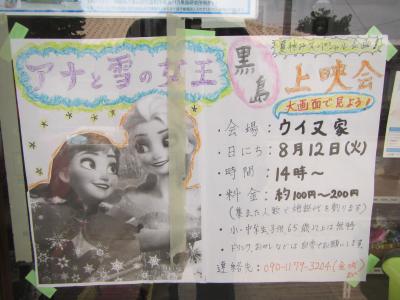 夏休みスペシャル企画!
アナと雪の女王
黒島
上映会
大画面で見よう!
・会場：ウイヌ家
・日にち：8月12日(火)
・時間：14時～
・料金：約100円～200円
(集まった人数で施設代を割ります)
・小・中学生、子供、65歳以上は無料
・ドリンク、おかしなどは自参でお願いします。
連絡先：090-1179-3204